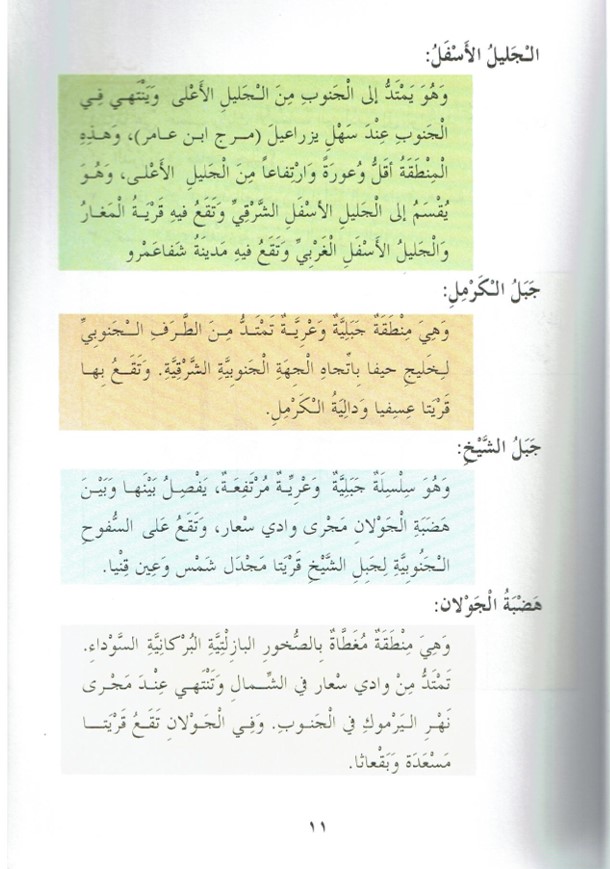 الْجَليلُ الأَسْفَلُ:
وَهُوَ يَمْتَدُّ إلى الْجَنوبِ مِنَ الْجَليلِ الأَعْلى وَيَنْتَهي فِي
الْجَنوبِ عِنْدَ سَهْلِ يزراعيلَ (مرج ابن عامر)، وَهَذِهِ
الْمِنْطَقَةُ أقَلُّ وُعورَةً وَارْتفاعاً مِنَ الْجَليلِ الأَعْلى، وَهُوَ
يُقْسَمُ إلى الْجَليلِ الأسْفَلِ الشَّرْقِيِّ وَتَقَعُ فيهِ قَرْيَةُ الْمَغارُ
وَالْجَليلُ الأَسْفَلِ الْغَرْبِيِّ وَتَقَعُ فيهِ مَدينَةُ شَفاعَمْرو
جَبَلُ الْكَرْمِلِ:
وَهِيَ مِنْطَقَةٌ جَبَلِيَّةٌ وَعْرِيَّةٌ تَمْتَدُّ مِنَ الطَّرَفِ الْجَنوبِيِّ
لِخَليجِ حيفا بِاتِّجاهِ الْجِهَةِ الْجَنوبِيَّةِ الشَّرْقِيَّةِ. وَتَقَعُ بِها
قَرْيَتا عِسِفيا وَدالِيَةُ الْكَرْمِلِ.
جَبَلُ الشَّيْخِ:
وَهُوَ سِلْسِلَةٌ جَبَلِيَّةٌ وَعْرِيِّةٌ مُرْتَفِعَةٌ، يَفْصِلُ بَيْنَها وَبَيْنَ
هَضَبَةِ الْجَولانِ مَجْرى وادي سْعار، وَتَقَعُ عَلى السُّفوحِ
الْجَنُوبِيَّةِ لِجَبلِ الشَّيْخِ قَرْيَتا مَجْدَل شَمْس وَعِين قِنْيا.
هَضْبَةُ الْجَوْلان:
وَهِيَ مِنْطَقَةٌ مُغَطَّاةٌ بِالصُّخورِ البازِلْتِيَّةِ الْبُرْكانِيَّةِ السَّوْداءِ.
تَمْتَدُّ مِنْ وادي سْعار في الشَّمالِ وَتَنْتَهي عِنْدَ مَجْرى
نَهْرِ الْيَرْموكِ في الْجَنوبِ. وَفِي الْجَوْلانِ تَقَعُ قَرْيَتا
مَسْعَدَة وَبَقْعاثا.
١١